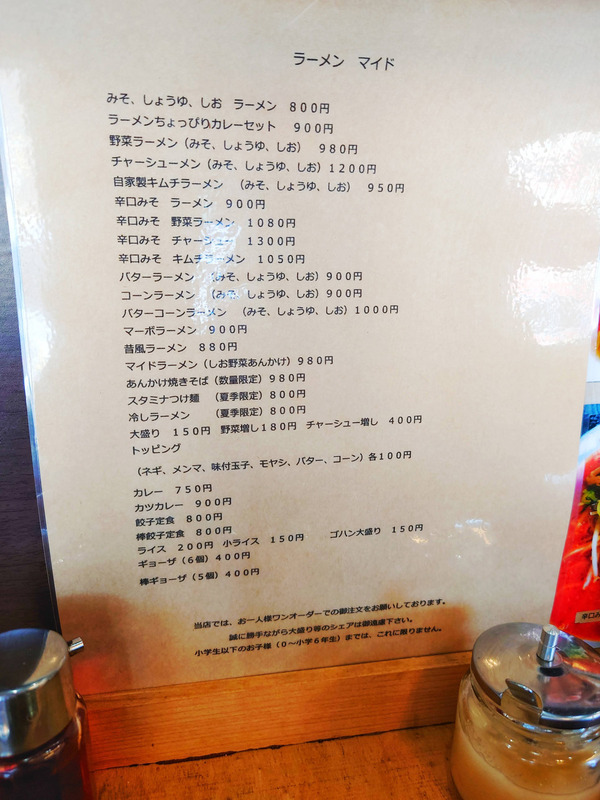 ラーメン　マイド
みそ、しょうゆ、しお　ラーメン　８００円
ラーメンちょっぴりカレーセット　９００円
野菜ラーメン（みそ、しょうゆ、しお）　９８０円
チャーシューメン（みそ、しょうゆ、しお）１２００円
自家製キムチラーメン　（みそ、しょうゆ、しお）　９５０円
辛口みそ　ラーメン　９００円
辛口みそ　野菜ラーメン　１０８０円
辛口みそ　チャーシュー　１３００円
辛口みそ　キムチラーメン　１０５０円
バターラーメン　（みそ、しょうゆ、しお）９００円
コーンラーメン　（みそ、しょうゆ、しお）９００円
バターコーンラーメン　（みそ、しょうゆ、しお）１０００円
マーボラーメン　９００円
昔風ラーメン　８８０円
マイドラーメン（しお野菜あんかけ）９８０円
あんかけ焼きそば（数量限定）９８０円
スタミナつけ麺　（夏季限定）８００円
冷しラーメン　　（夏季限定）８００円
大盛り　１５０円　野菜増し１８０円　チャーシュー増し　４００円
トッピング
（ネギ、メンマ、味付玉子、モヤシ、バター、コーン）各１００円
カレー　７５０円
カツカレー　９００円
餃子定食　８００円
棒餃子定食　８００円
ライス　２００円　小ライス　１５０円　　ゴハン大盛り　１５０円
ギョーザ（６個）４００円
棒ギョーザ（５個）４００円
当店では、お一人様ワンオーダーでの御注文をお願いしております。
誠に勝手ながら大盛り等のシェアは御遠慮下さい。
小学生以下のお子様（０～小学６年生）までは、これに限りません。
辛口